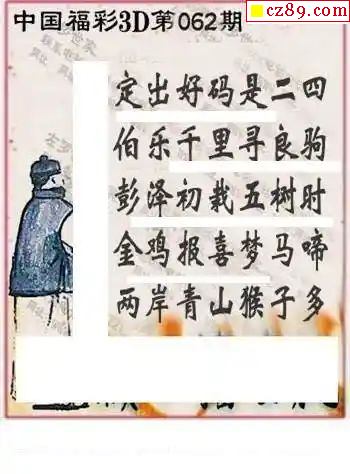 cz89.com
中国福彩3D第062期
定出好码是二四
伯乐千里寻良驹
彭泽初栽五树时
金鸡报喜梦马啼
两岸青山猴子多